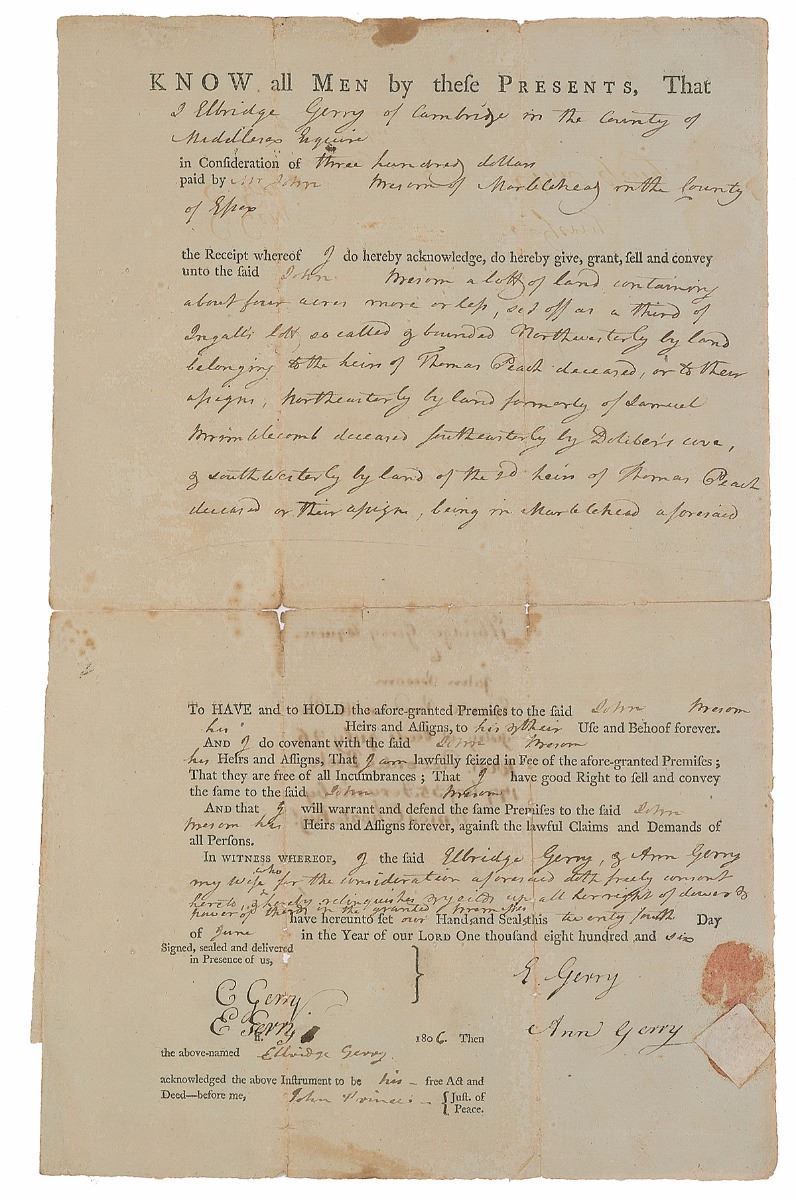 KNOW all MEN by theſe PRESENTS, That
I Elbridge Gerry of Cambridge in the County of
Middlesex Esquire
in Conſideration of three hundred dollars
paid by Mr John Mesom of Marblehead in the County
of Eſsex
the Receipt whereof I do hereby acknowledge, do hereby give, grant, ſell and convey
unto the ſaid John Mesom a lott of land containing
about four acres more or leſs, set off as a third of
Ingalls lott so called & bounded Northwesterly by land
belonging to the heirs of Thomas Peach deceased, or to their
aſsigns, Northeasterly by land formerly of Samuel
deceased southeasterly by Doliber's cove,
& southwesterly by land of the sd heirs of Thomas Peach
deceased or their aſsigns, being in Marblehead aforesaid
To HAVE and to HOLD the afore-granted Premiſes to the ſaid John Mesom
his Heirs and Aſſigns, to his & their Uſe and Behoof forever.
AND I do covenant with the ſaid John Mesom
his Heirs and Aſſigns, That I am lawfully ſeized in Fee of the afore-granted Premiſes;
That they are free of all Incumbrances; That I have good Right to ſell and convey
the ſame to the ſaid John Mesom
AND that I will warrant and defend the ſame Premiſes to the ſaid John
Mesom his Heirs and Aſſigns forever, againſt the lawful Claims and Demands of
all Perſons.
IN WITNESS WHEREOF, I the ſaid Elbridge Gerry, & Ann Gerry
my wife who for the consideration aforesaid doth freely consent
hereto, & hereby relinquishes & yields up all her right of dower &
power of thirds in the granted premises
have hereunto ſet our Hand and Seal this twenty fourth Day
of June in the Year of our LORD One thouſand eight hundred and six
Signed, ſealed and delivered
in Preſence of us,
E. Gerry
C Gerry
E Gerry
Ann Gerry
ſſ. 1806. Then
the above-named Elbridge Gerry
acknowledged the above Inſtrument to be his free Act and
Deed—before me, John Prince Juſt. of
Peace.